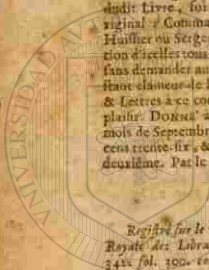 dudit Livre, foi
riginal : Comma
Huissier ou Serge
tion d'icelles tous
sans demander au
stant clameur de
& Lettres à ce co
plaisir. DONNÉ à
mois de Septemb
cens trente-six, &
deuxième. Par le
Registré sur le
Royale des Libra
342. fol. 300.